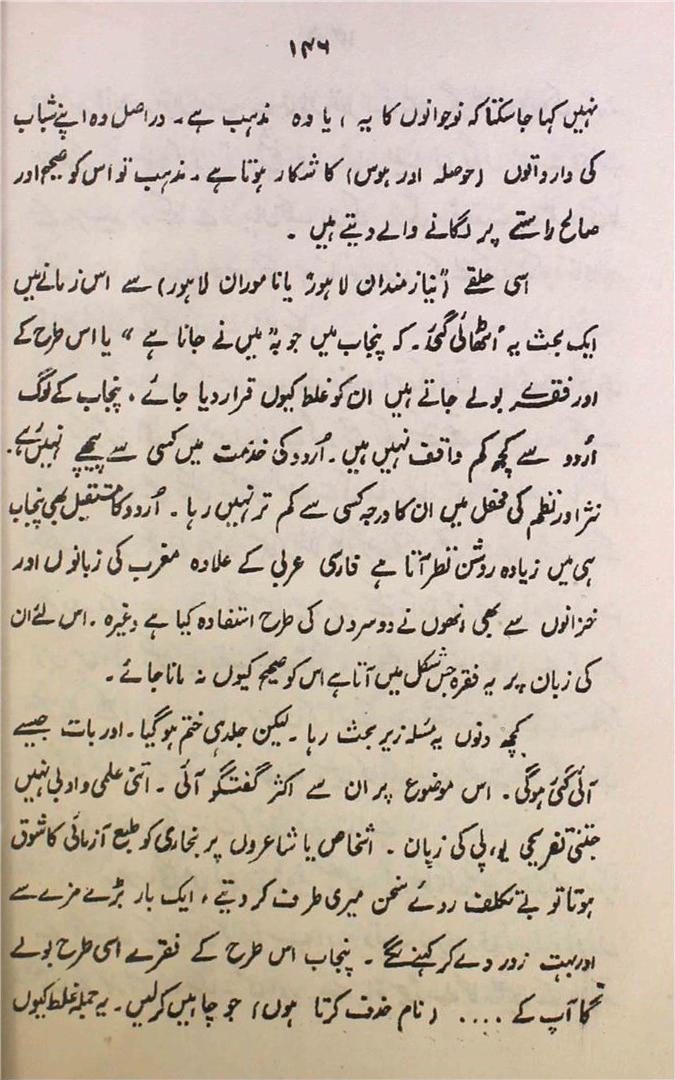 ۱۴۶
نہیں کہا جا سکتا کہ نوجوانوں کا یہ ، یا وہ مذہب ہے ۔ دراصل وہ اپنے شباب
کی وارداتوں (حوصلہ اور ہوس) کا شکار ہوتا ہے ۔ مذہب تو اس کو صحیح اور
صالح راستے پر لگانے والے دیتے ہیں ۔
اسی حلقے (”نیاز مندان لاہور“ یا ناموران لاہور) سے اس زمانے میں
ایک بحث یہ اُٹھائی گئی ۔ کہ پنجاب میں جو یہ ”میں نے جانا ہے“ یا اس طرح کے
اور فقرے بولے جاتے ہیں ان کو غلط کیوں قرار دیا جائے ، پنجاب کے لوگ
اُردو سے کچھ کم واقف نہیں ہیں ۔ اُردو کی خدمت میں کسی سے پیچھے نہیں رہے ۔
نثر اور نظم کی محفل میں ان کا درجہ کسی سے کم تر نہیں رہا ۔ اُردو کا مستقبل بھی پنجاب
ہی میں زیادہ روشن نظر آتا ہے فارسی عربی کے علاوہ مغرب کی زبانوں اور
خزانوں سے بھی انھوں نے دوسروں کی طرح استفادہ کیا ہے وغیرہ ۔ اس لئے ان
کی زبان پر یہ فقرہ جس شکل میں آتا ہے اس کو صحیح کیوں نہ مانا جائے ۔
کچھ دنوں یہ مسٔلہ زیر بحث رہا ۔ لیکن جلد ہی ختم ہو گیا ۔ اور بات جیسے
آئی گئی ہو گی ۔ اس موضوع پر ان سے اکثر گفتگو آئی ۔ اتنی علمی و ادبی نہیں
جتنی تفریحی یو ، پی کی زبان ۔ اشخاص یا شاعروں پر بخاری کو طبع آزمائی کا شوق
ہوتا تو بے تکلف روئے سخن میری طرف کر دیتے ، ایک بار بڑے مزے سے
اور بہت زور دے کر کہنے لگے ۔ پنجاب اس طرح کے فقرے اسی طرح بولے
گا آپ کے .... (نام حذف کرتا ہوں) جو چاہیں کر لیں ۔ یہ جملہ غلط کیوں